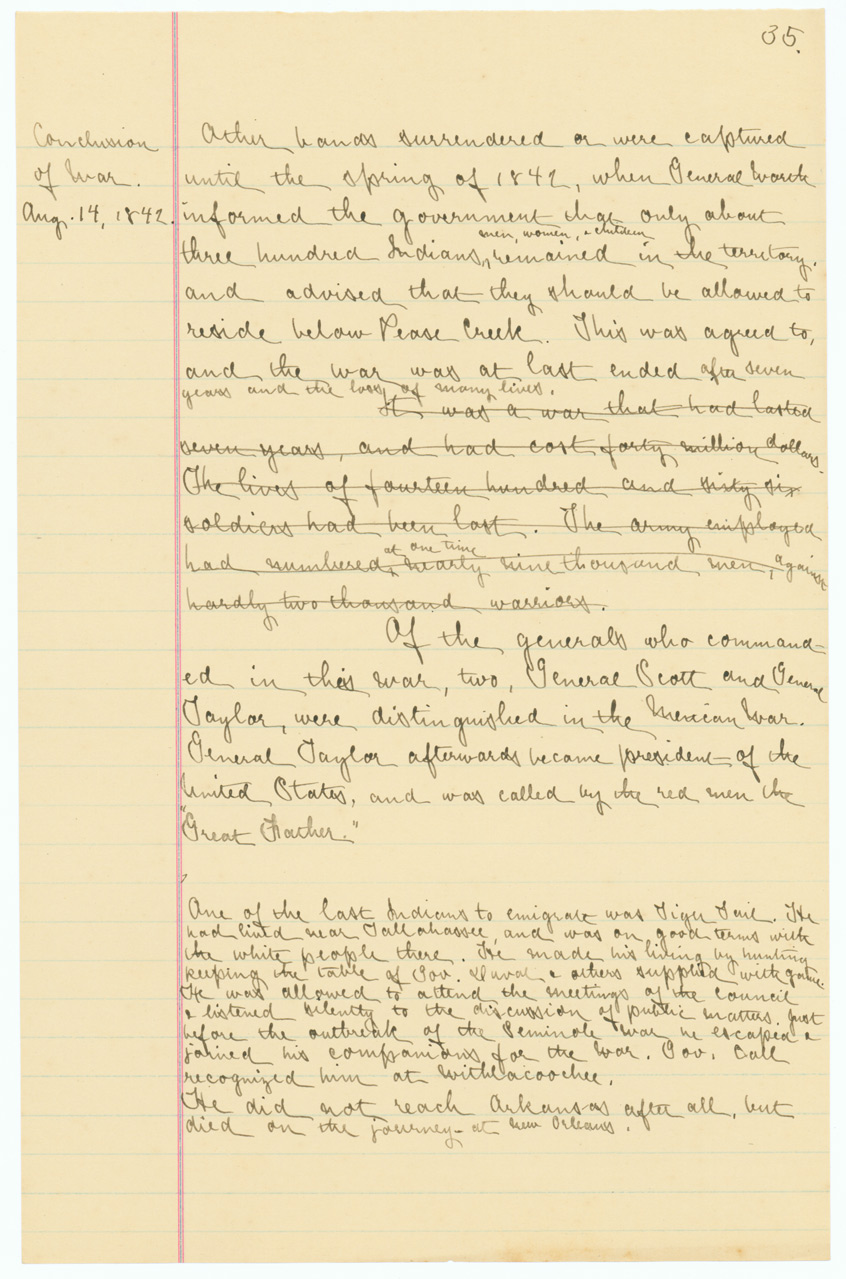 35.
Conclusion
of War.
Aug. 14, 1842.
Other bands surrendered or were captured
until the spring of 1842, when General Worth
informed the government that only about
men, women, & children
three hundred Indians, remained in the territory.
and advised that they should be allowed to
reside below Pease Creek. This was agreed to,
and the war was at last ended after seven
years and the loss of many lives.
It was a war that had lasted
seven years, and had cost forty million dollars.
The lives of fourteen hundred and sixty six
soldiers had been lost. The army employed
at one time
had numbered, nearly nine thousand men, against
hardly two thousand warriors.
Of the generals who command-
ed in this war, two, General Scott and General
Taylor, were distinguished in the Mexican War.
General Taylor afterwards became president of the
United States, and was called by the red men the
"Great Father."
One of the last Indians to emigrate was Tiger Tail. He
had lived near Tallahassee, and was on good terms with
the white people there. He made his living by hunting
keeping the table of Gov. Duval & others supplied with game.
He was allowed to attend the meetings of the council
& listened silently to the discussion of public matters. Just
before the outbreak of the Seminole war he escaped &
joined his companions for the war. Gov. Call
recognized him at Withlacoochee.
He did not reach Arkansas after all, but
died on the journey - at New Orleans.